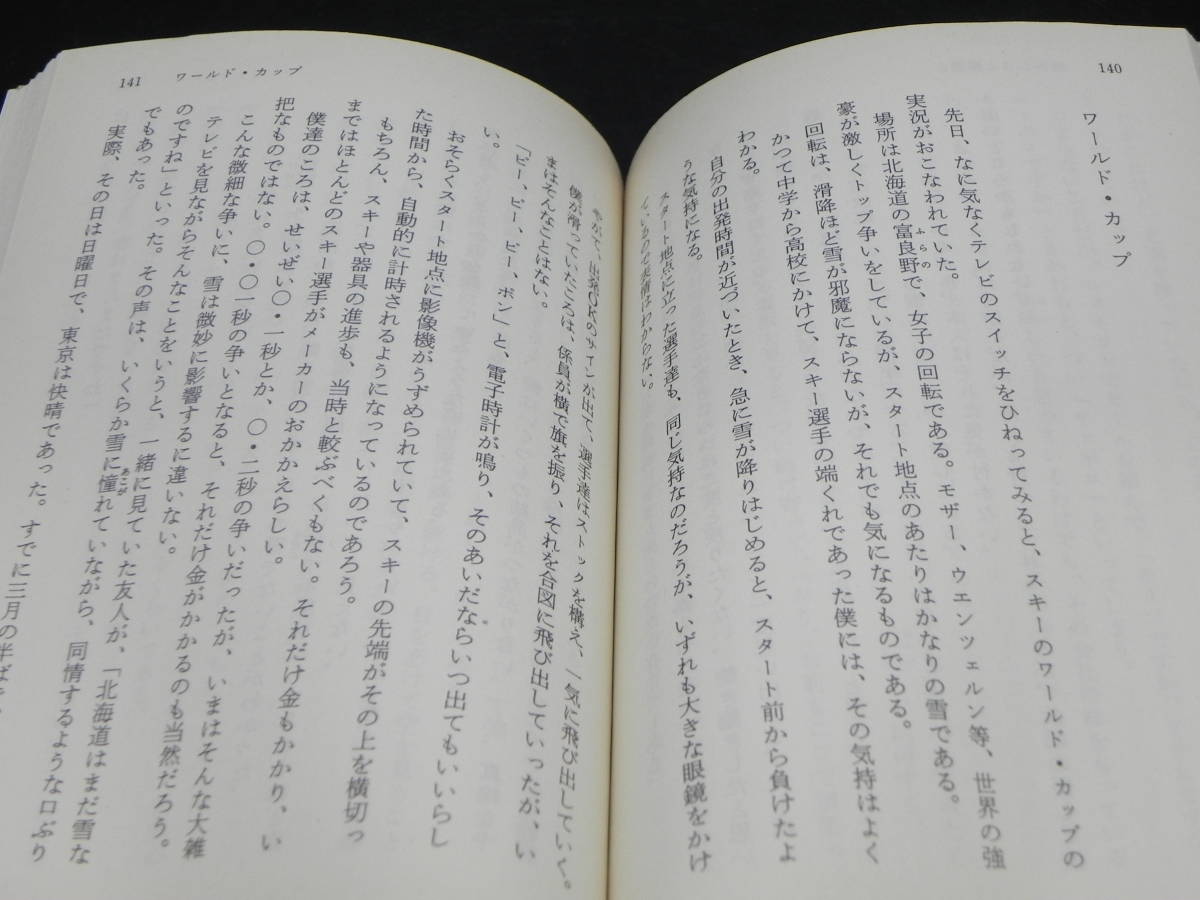 140
ワールド・カップ
先日、なに気なくテレビのスイッチをひねってみると、スキーのワールド・カップの
実況がおこなわれていた。
場所は北海道の富良野で、女子の回転である。モザー、ウエンツェルン等、世界の強
ふらの
豪が激しくトップ争いをしているが、スタート地点のあたりはかなりの雪である。
回転は、滑降ほど雪が邪魔にならないが、それでも気になるものである。
かつて中学から高校にかけて、スキー選手の端くれであった僕には、その気持はよく
わかる。
自分の出発時間が近づいたとき、急に雪が降りはじめると、スタート前から負けたよ
うな気持になる。
スタート地点に立った選手達も、同じ気持なのだろうが、いずれも大きな眼鏡をかけ
ているので表情はわからない。
141 ワールド・カップ
やがて、出発OKのサインが出て、選手達はストックを構え、一気に飛び出していく。
僕が滑っていたころは、係員が横で旗を振り、それを合図に飛び出していったが、い
まはそんなことはない。
「ピー、ピー、ピー、ポン」と、電子時計が鳴り、そのあいだならいつ出てもいいらし
い。
おそらくスタート地点に影像機がうずめられていて、スキーの先端がその上を横切っ
た時間から、自動的に計時されるようになっているのであろう。
もちろん、スキーや器具の進歩も、当時と較ぶべくもない。それだけ金もかかり、い
まではほとんどのスキー選手がメーカーのおかかえらしい。
僕達のころは、せいぜい〇・一秒とか、〇・二秒の争いだったが、いまはそんな大雑
把なものではない。〇・〇一秒の争いとなると、それだけ金がかかるのも当然だろう。
こんな微細な争いに、雪は微妙に影響するに違いない。
テレビを見ながらそんなことをいうと、一緒に見ていた友人が、「北海道はまだ雪な
のですね」といった。その声は、いくらか雪に憧れていながら、同情するような口ぶり
あこが
でもあった。
実際、その日は日曜日で、東京は快晴であった。すでに三月の半ばで